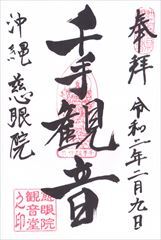 奉拝
令和二年二月九日
千手観音
沖縄
慈眼院
慈眼院
観音堂
之印